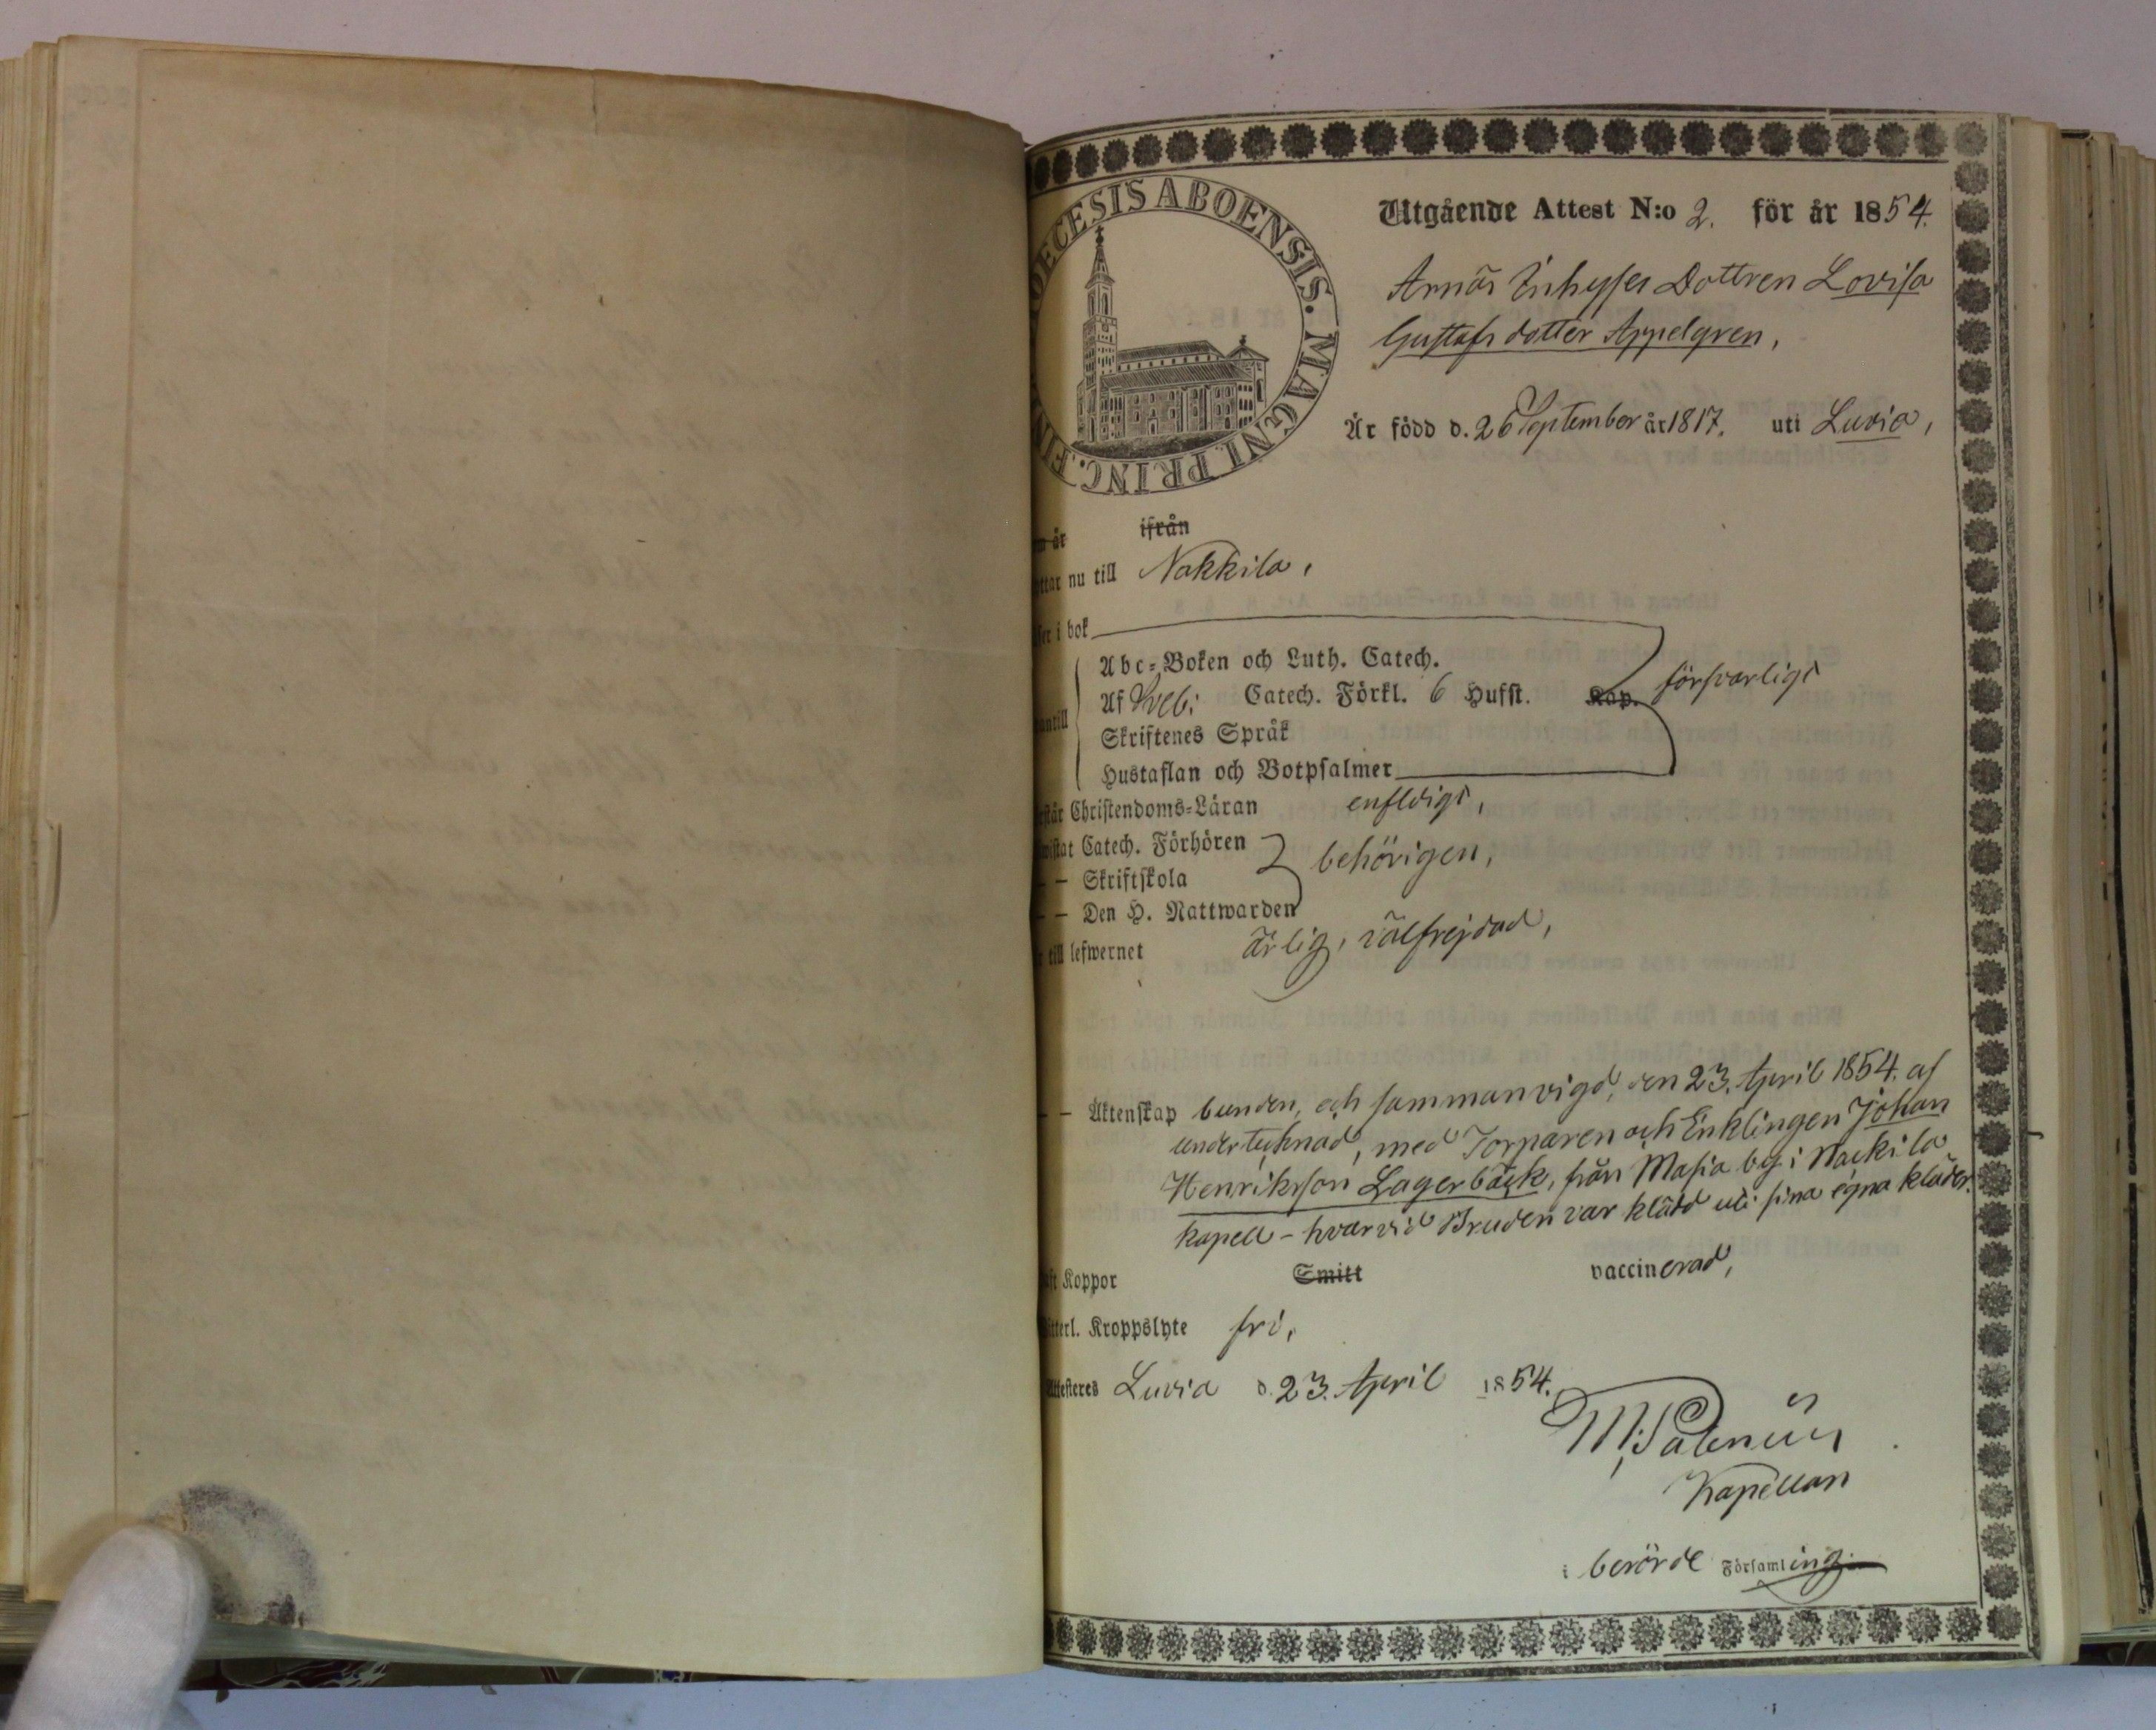 DIOECESIS ABOENSIS. MAGNI PRINC. FIN
Utgående Attest N:o 2. för år 1854.
Arnäs Inhyses Dottren Lovisa
Gustafs dotter Appelgren,
Är född d. 26 September år 1817. uti Luvia,
är ifrån
nu till Nakkila,
i bok
Abc-Boken och Luth. Catech.
Af Sveb: Catech. Förkl. 6 Hufst. Kap. försvarligt
antill
Skriftenes Språk
Hustaflan och Botpsalmer
Christendoms-Läran enfldigt,
Catech. Förhören
behörigen,
— Skriftskola
— Den H. Nattwarden
till lefwernet ärlig, välfrejdad,
— Äktenskap bunden, och sammanvigd, den 23. April 1854. af
undertecknad, med Torparen och Enklingen Johan
Henriksson Lagerbäck, från Masia by i Nackila
kapell – hvarvid Bruden var klädd uti sina egna kläder.
Koppor Smitt vaccinerad,
Kroppslyte fri,
Luvia d. 23. April 1854.
Kapellan
i berörde Församling.